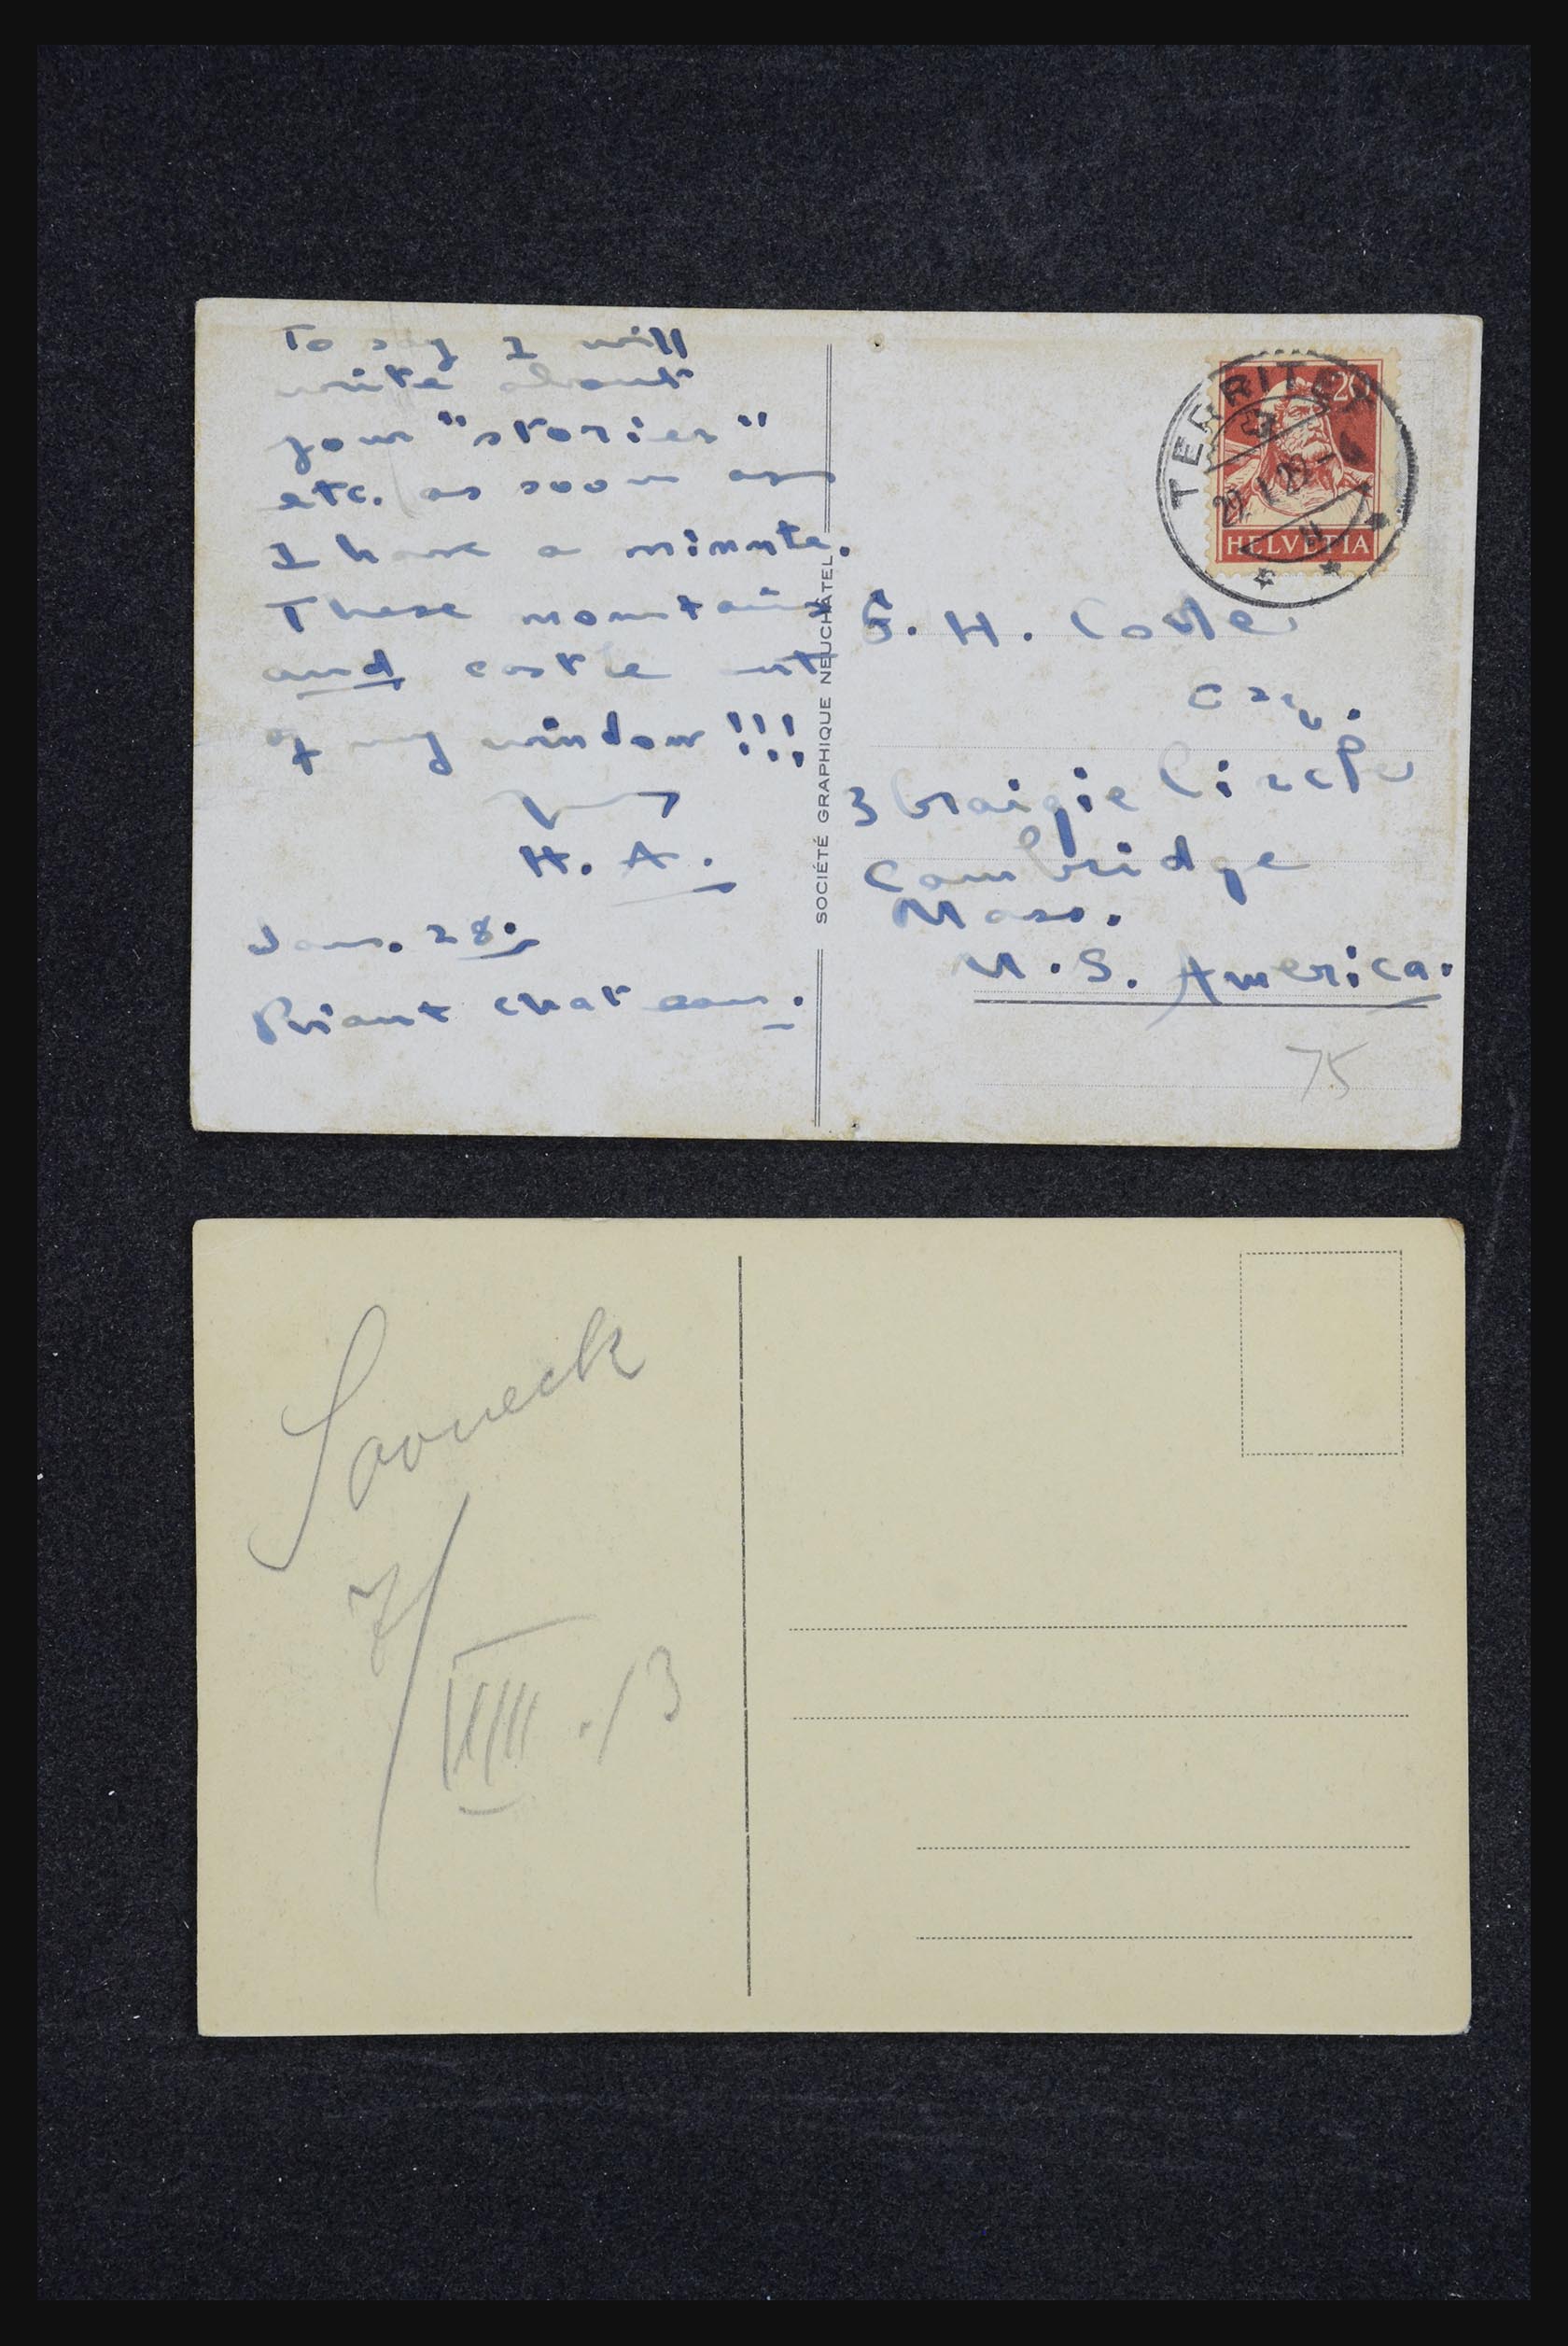 To say I will
write about
your "stories"
etc. as soon as
I have a minute.
These mountains
and castle out
of my window!!!
H. A.
Jan. 28.
Riant Chateau.
SOCIÉTÉ GRAPHIQUE NEUCHÂTEL
TERRITET
20
HELVETIA
G. H.
Esq.
3 Craigie Circle
Cambridge
Mass.
U. S. America.
75
7/VIII.13